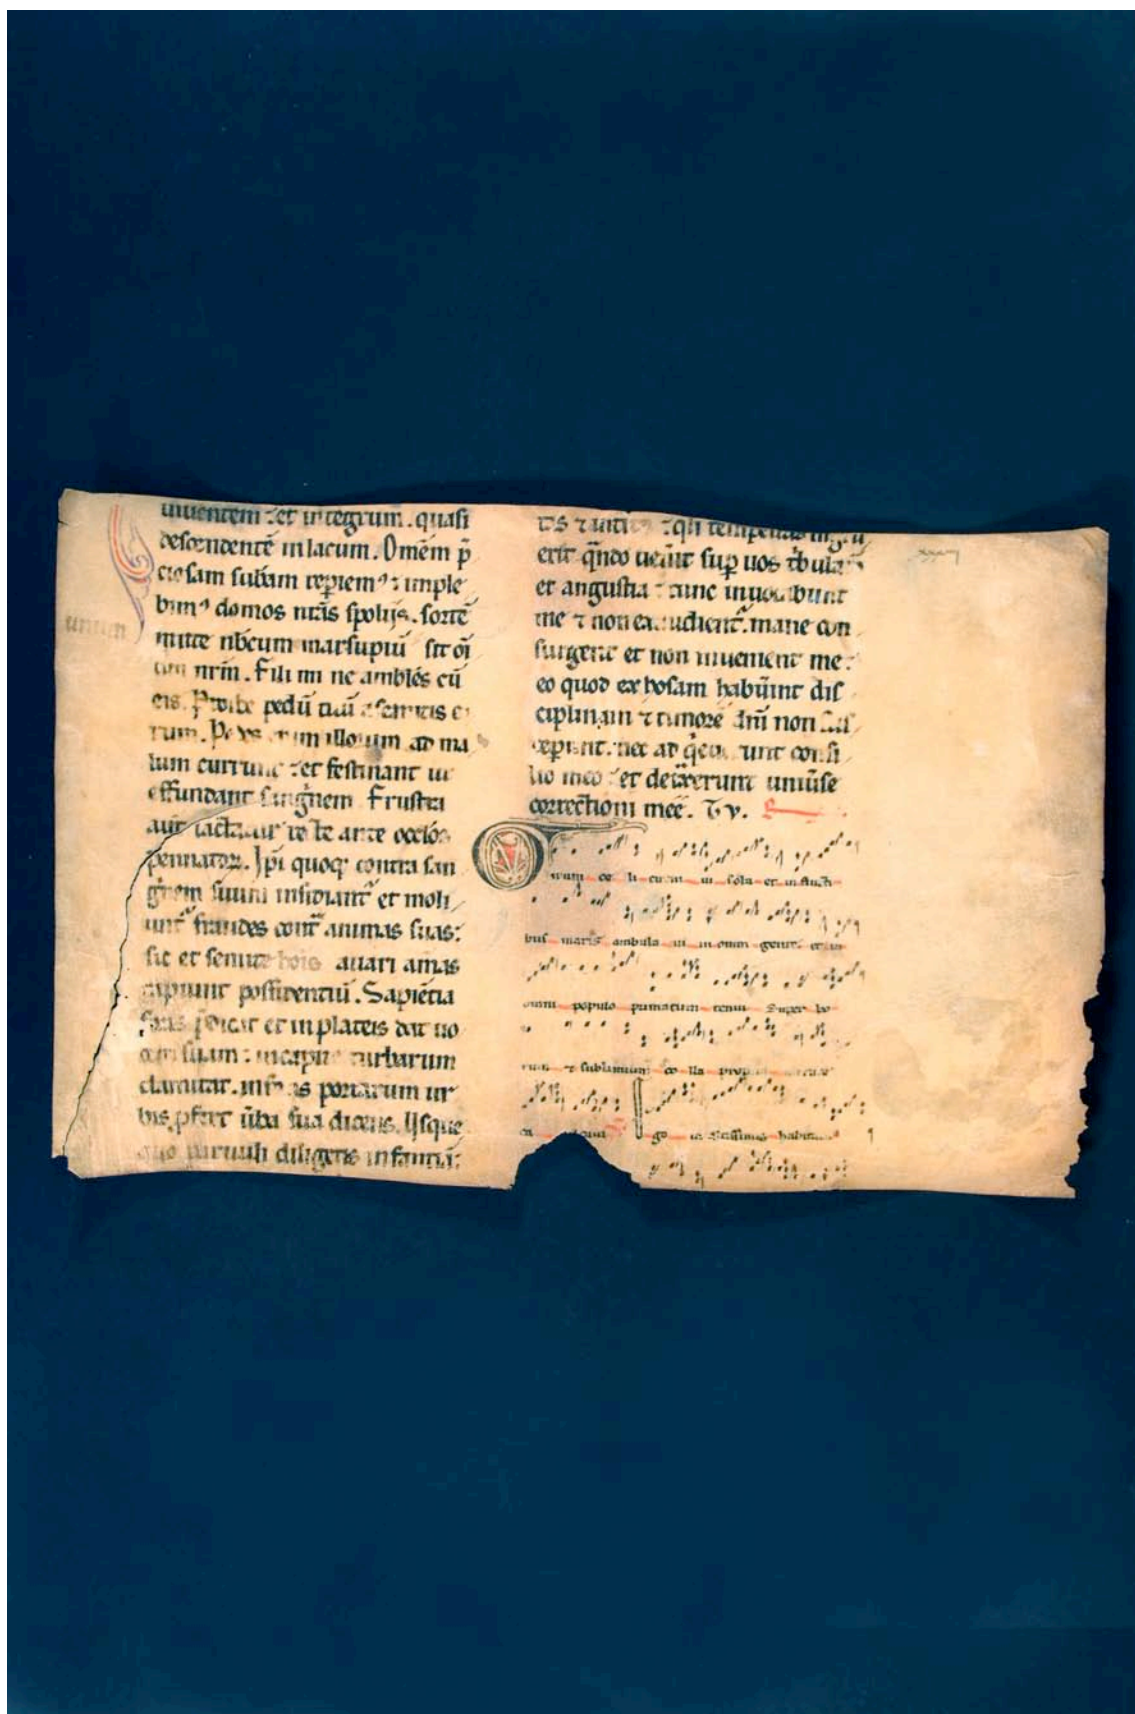 uiuentem : et integrum . quasi
descendentē in lacum . Omēm p̄
ciosam subām repiemꝰ : imple
bimꝰ domos nrās spolijs . sortē
unum
mitte nbcum marsupiū sit
nrm̄ . Fili mi ne amblēs cū
eis . pedū semitis
rum . illorum ad ma
lum currunt : et festinant ut
effundant sang̃nem Frustra
aūt ante oc̃los
pennatoꝝ . Ip̄i quoqꝫ contra san
g̃nem suum insidiant᷑ et moli
unt᷑ fraudes cont᷑ animas suas :
sic et semite hois auari amas
rapiunt possidentiū . Sapiētia
foris p̄dicat et in plateis dat uo
cem suam : in capite turbarum
clamitat . portarum ur
bis pfert ūba sua dicens . Usque
quo paruuli diligetis infantiā :
erit qñdo uenīt suꝑ uos tbula
et angustia : tunc inuocabunt
me ⁊ non exaudient᷑ . mane con
surgent et non inuenient me :
eo quod exhosam habūint dis
ciplinam ⁊ timorē dnī non
ceperint . nec ad consi
lio meo : et detᷓxerunt uniūse
correctioni meę . Tv .
irum ce li cum ui sola et in fluct
bus maris ambula ui in omni gente et in
omni populo primatum tenui Super bo
rum ⁊ sublimium co lla propria
ca go in altissimis habita